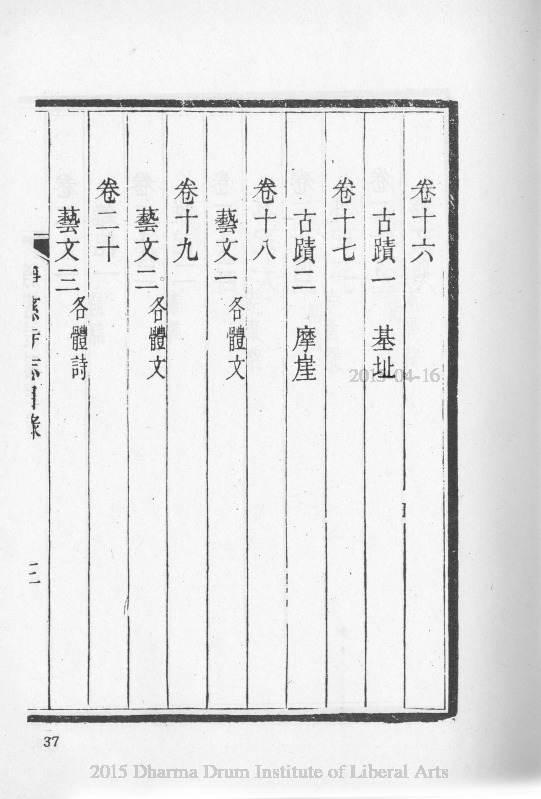 卷十六
古蹟一 基址
卷十七
古蹟二 摩崖
卷十八
藝文一 各體文
卷十九
藝文二 各體文
卷二十
藝文三 各體詩
慈寺志目錄
三
37
2015-04-16
2015 Dharma Drum Institute of Liberal Arts